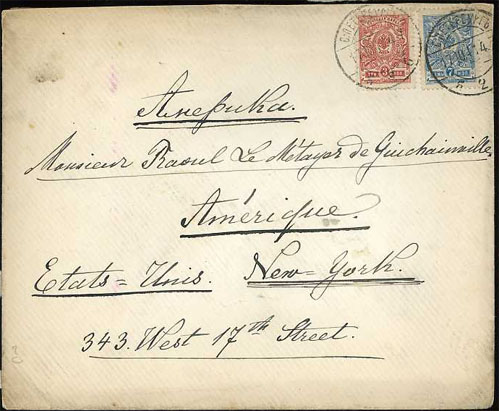 3
7
Америка.
Monsieur Raoul Le Métayer de Guichainville,
Amérique.
Etats=Unis. New=York.
343. West 17th Street.